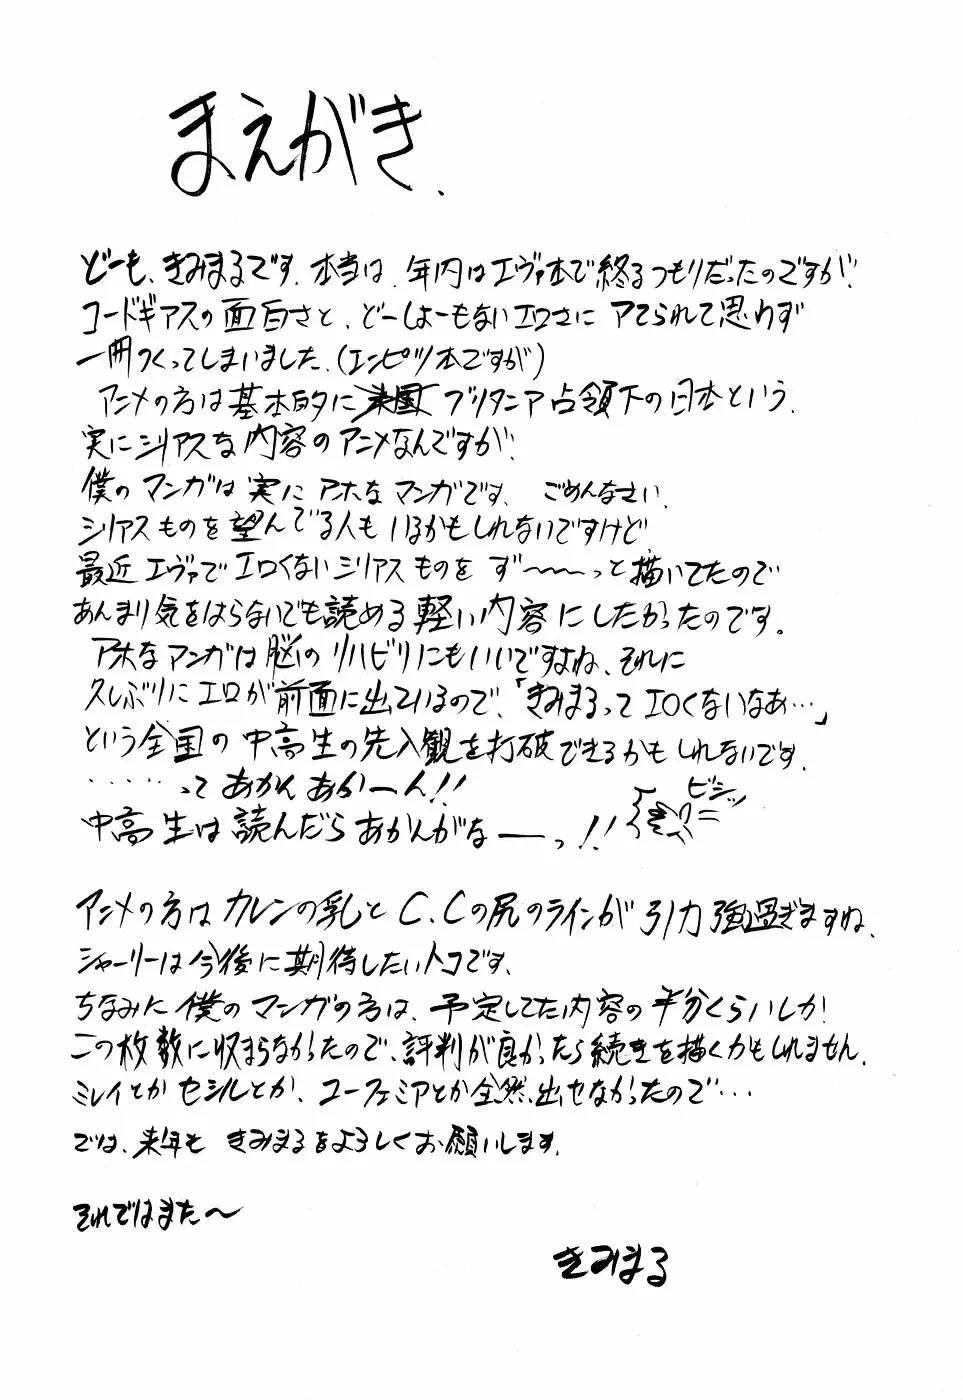 まえがき.
どーも、きみまるです。本当は、年内はエヴァ本で終るつもりだったのですが、
コードギアスの面白さと、どーしよーもないエロさに アてられて思わず
一冊つくってしまいました。(エンピツ本ですが)
アニメの方は基本的に ブリタニア占領下の日本という、
実にシリアスな内容のアニメなんですが、
僕のマンガは実に アホなマンガです。 ごめんなさい。
シリアスものを望んでる人も いるかもしれないですけど
最近 エヴァで エロくないシリアスものを ず〜〜〜っと描いてたので
あんまり気をはらないでも読める軽い内容にしたかったのです。
アホなマンガは脳のリハビリにもいいですよね、それに
久しぶりにエロが前面に出ているので、「きみまるってエロくないなあ…」
という全国の中高生の先入観を打破できるかもしれないです。
‥‥‥って あかんあかーん!!
中高生は読んだらあかんがなーっ!!
ビシッ
アニメの方はカレンの乳とC.Cの尻のラインが引力強過ぎますね。
シャーリーは今後に期待したいトコです。
ちなみに僕のマンガの方は、予定してた内容の半分くらいしか
この枚数に収まらなかったので、評判が良かったら続きを描くかもしれません。
ミレイとか セシルとか、ユーフェミアとか全然出せなかったので…
では、来年も きみまるをよろしくお願いします。
それではまた〜
きみまる